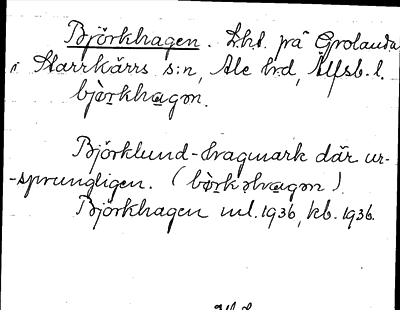 Björkhagen. Lht. på Grolanda
i Starrkärrs s:n, Ale hd, Älfsb. l.
bjö̀rkhagən.
Björklund-hvagmark där ur-
-sprungligen. (bö̀rkəlvagən).
Björkhagen ml. 1936, kb. 1936.